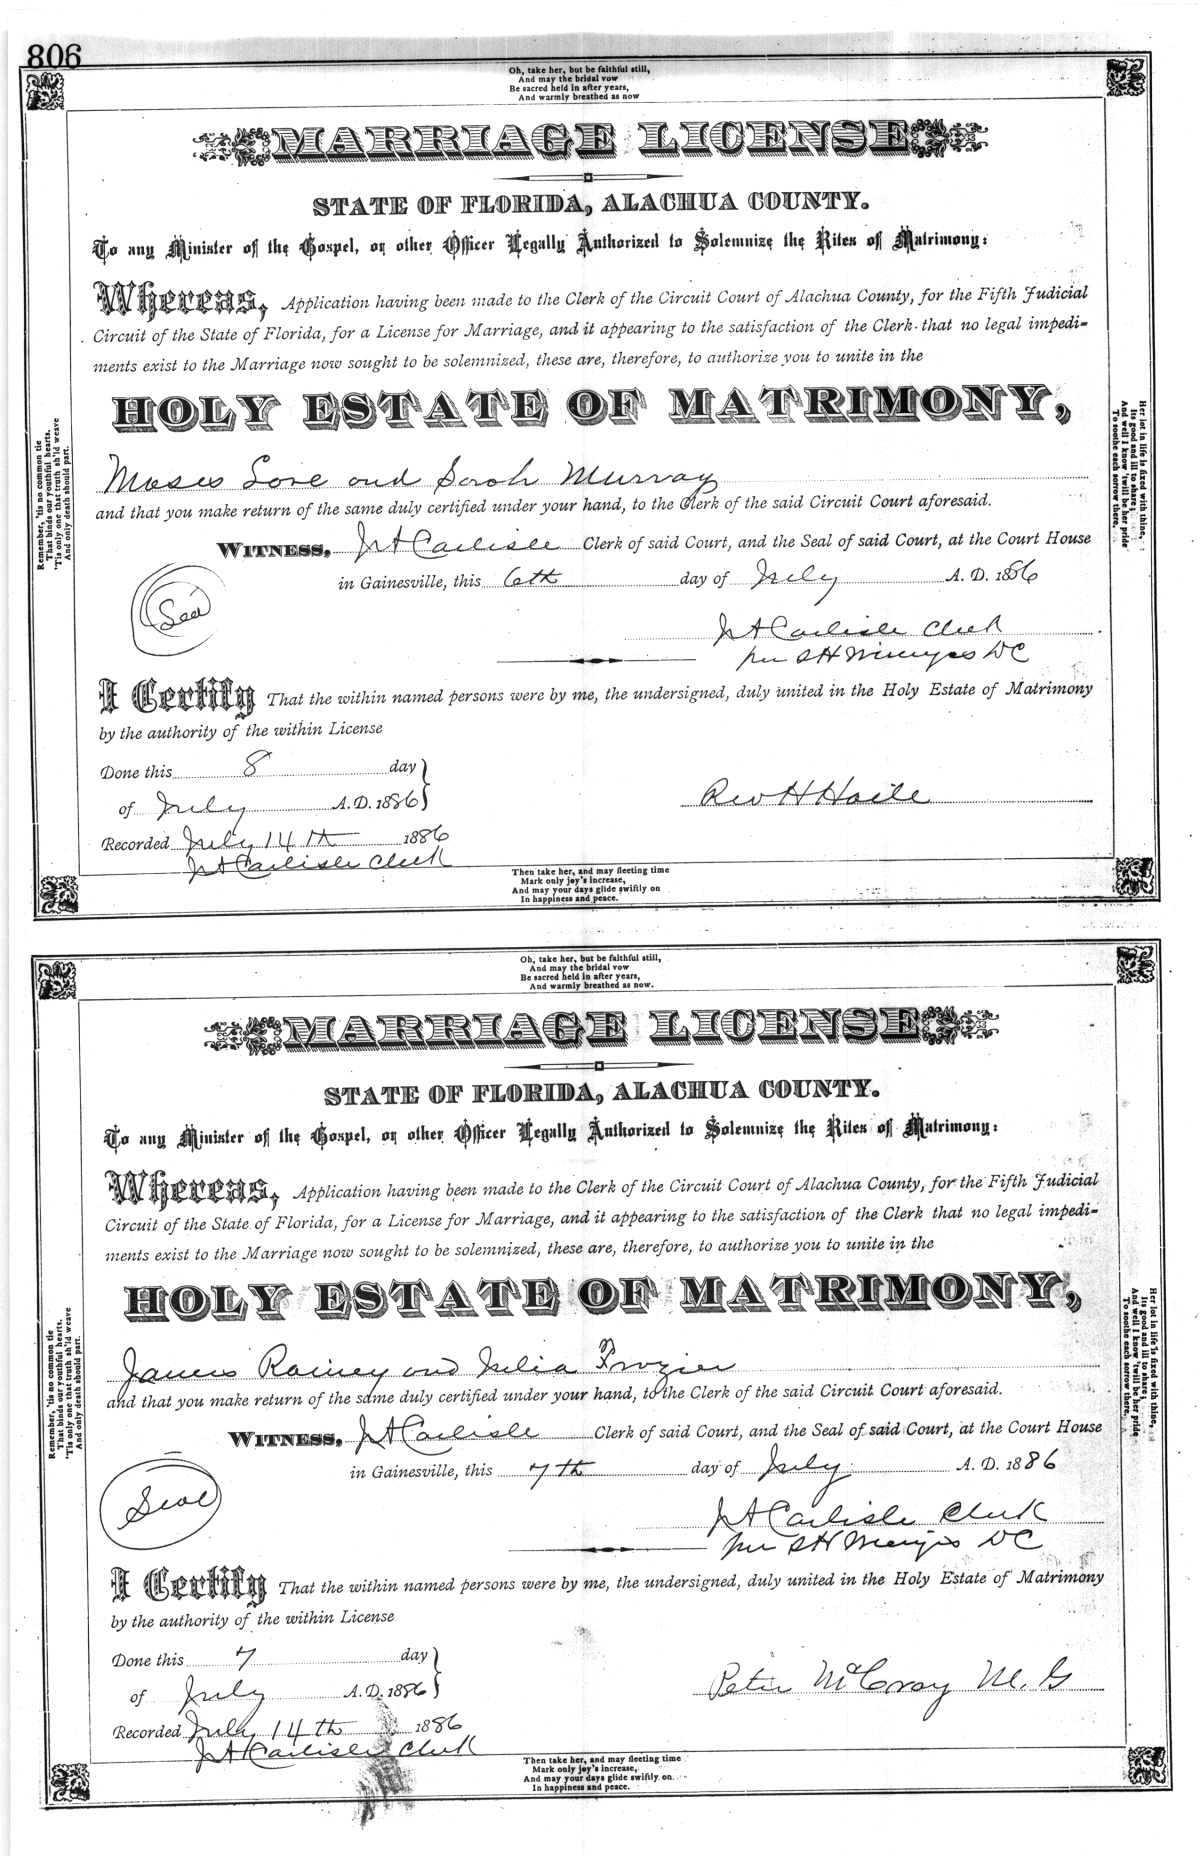 806
Oh, take her, but be faithful still,
And may the bridal vow
Be sacred held in after years,
And warmly breathed as now
MARRIAGE LICENSE
STATE OF FLORIDA, ALACHUA COUNTY.
To any Minister of the Gospel, or other Officer Legally Authorized to Solemnize the Rites of Matrimony:
Whereas, Application having been made to the Clerk of the Circuit Court of Alachua County, for the Fifth Judicial
Circuit of the State of Florida, for a License for Marriage, and it appearing to the satisfaction of the Clerk that no legal impedi-
ments exist to the Marriage now sought to be solemnized, these are, therefore, to authorize you to unite in the
HOLY ESTATE OF MATRIMONY,
Moses Love and Sarah Murray
and that you make return of the same duly certified under your hand, to the Clerk of the said Circuit Court aforesaid.
WITNESS, J A Carlisle Clerk of said Court, and the Seal of said Court, at the Court House
in Gainesville, this 6th day of July A. D. 1886
Seal
J A Carlisle Clerk
per S H DC
I Certify That the within named persons were by me, the undersigned, duly united in the Holy Estate of Matrimony
by the authority of the within License
Done this 8 day
of July A.D. 1886
Rev H Haile
Recorded July 14th 1886
J A Carlisle Clerk
Remember, 'tis no common tie
That binds our youthful hearts.
'Tis only one that truth sh'ld weave
And only death should part.
Her lot in life is fixed with thine,
Its good and ill to share;
And well I know 'twill be her pride
To soothe each sorrow there.
Then take her, and may fleeting time
Mark only joy's increase,
And may your days glide swiftly on
In happiness and peace.
Oh, take her, but be faithful still,
And may the bridal vow
Be sacred held in after years,
And warmly breathed as now.
MARRIAGE LICENSE
STATE OF FLORIDA, ALACHUA COUNTY.
To any Minister of the Gospel, or other Officer Legally Authorized to Solemnize the Rites of Matrimony:
Whereas, Application having been made to the Clerk of the Circuit Court of Alachua County, for the Fifth Judicial
Circuit of the State of Florida, for a License for Marriage, and it appearing to the satisfaction of the Clerk that no legal impedi-
ments exist to the Marriage now sought to be solemnized, these are, therefore, to authorize you to unite in the
HOLY ESTATE OF MATRIMONY,
James Rainey and Julia Frazier
and that you make return of the same duly certified under your hand, to the Clerk of the said Circuit Court aforesaid.
WITNESS, J A Carlisle Clerk of said Court, and the Seal of said Court, at the Court House
in Gainesville, this 7th day of July A. D. 1886
Seal
J A Carlisle Clerk
per S H DC
I Certify That the within named persons were by me, the undersigned, duly united in the Holy Estate of Matrimony
by the authority of the within License
Done this 7 day
of July A.D. 1886
Peter McCray M. G
Recorded July 14th 1886
J A Carlisle Clerk
Remember, 'tis no common tie
That binds our youthful hearts.
'Tis only one that truth sh'ld weave
And only death should part.
Her lot in life is fixed with thine,
Its good and ill to share;
And well I know 'twill be her pride
To soothe each sorrow there.
Then take her, and may fleeting time
Mark only joy's increase,
And may your days glide swiftly on
In happiness and peace.